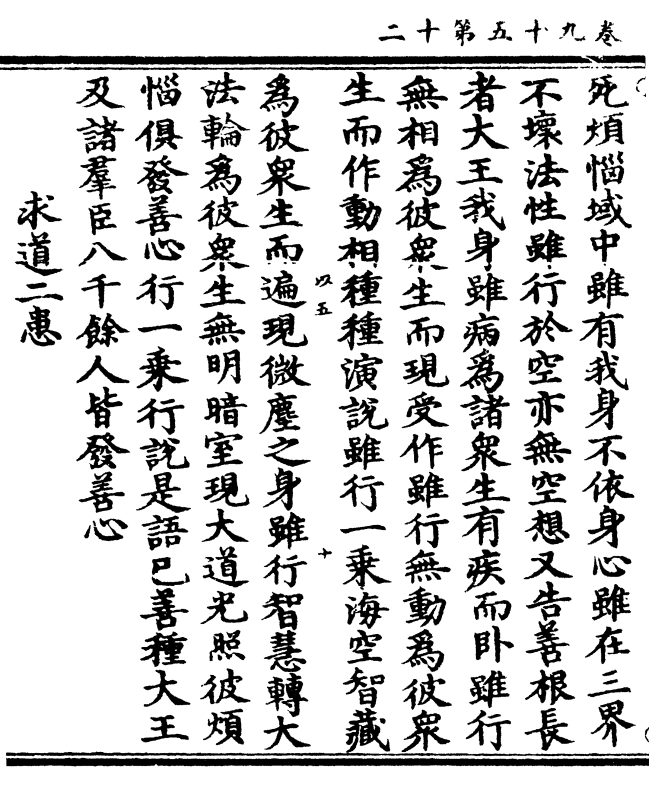 卷九十五第十二
死煩惱域中雖有我身不依身心雖在三界
不壞法性雖行於空亦無空想又告善根長
者大王我身雖病爲諸衆生有疾而卧雖行
無相爲彼衆生而現受作雖行無動爲彼衆
生而作動相種種演說雖行一乗海空智藏
以五
十
爲彼衆生而遍現微塵之身雖行智慧轉大
法輪爲彼衆生無明暗室現大道光照彼煩
惱俱發善心行一乗行說是語已善種大王
及諸羣臣八千餘人皆發善心
求道二患